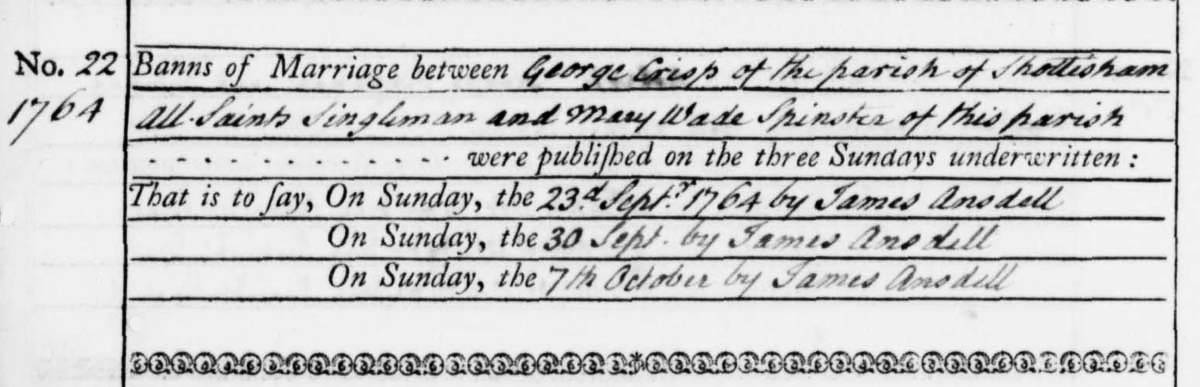 No. 22 Banns of Marriage between George Crisp of the parish of Shottisham
1764 All Saints Singleman and Mary Wade Spinster of this parish
. . . . . . . . . . . . . . . . were publiſhed on the three Sundays underwritten :
That is to ſay, On Sunday, the 23.d Sept.r 1764 by James Ansdell
On Sunday, the 30 Sept. by James Ansdell
On Sunday, the 7th October by James Ansdell